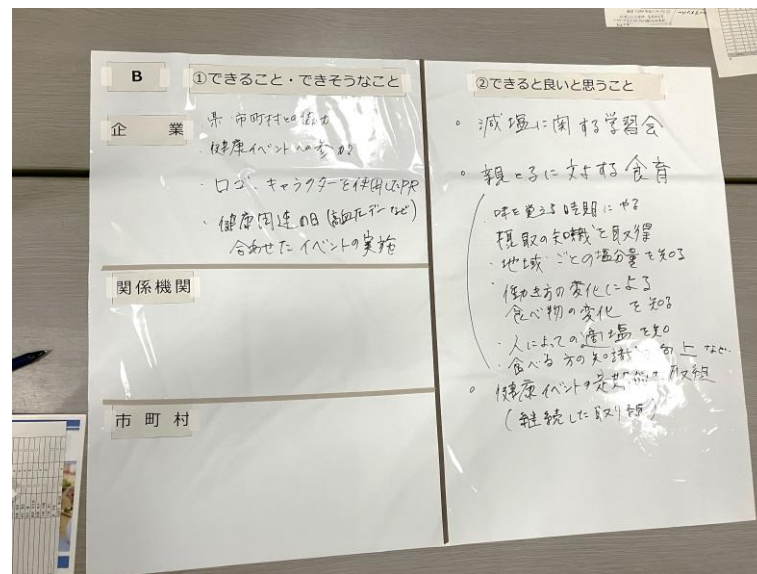 B
①できること・できそうなこと
企 業
県・市町村との協力
・健康イベントへの参加
・ロゴ、キャラクターを使用してPR
・健康関連の日(高血圧デーなど)
合わせたイベントの実施
関係機関
市町村
②できると良いと思うこと
。減塩に関する学習会
。親と子に対する食育
・味を覚える時期にやる
摂取の知識を取得
・地域ごとの塩分量を知る
・働き方の変化による
食べ物の変化を知る
・人によっての適塩を知
・食べる方の知識 向上など
。健康イベントの定期的な取組
(継続した取り組)